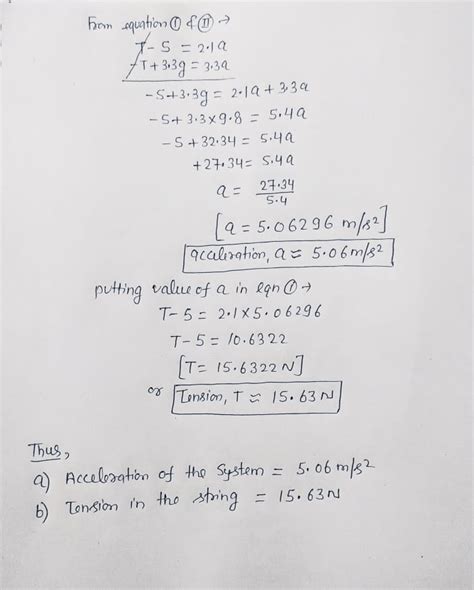 From equation ① & ⑪ →
T - 5 = 2.1a
-T + 3.3g = 3.3a
-5 + 3.3g = 2.1a + 3.3a
-5 + 3.3 × 9.8 = 5.4a
-5 + 32.34 = 5.4a
+27.34 = 5.4a
a = 27.34 / 5.4
[a = 5.06296 m/s²]
acceleration, a ≈ 5.06 m/s²
putting value of a in eqn ① →
T - 5 = 2.1 × 5.06296
T - 5 = 10.6322
[T = 15.6322 N]
or Tension, T ≈ 15.63 N
Thus,
a) Acceleration of the system = 5.06 m/s²
b) Tension in the string = 15.63 N